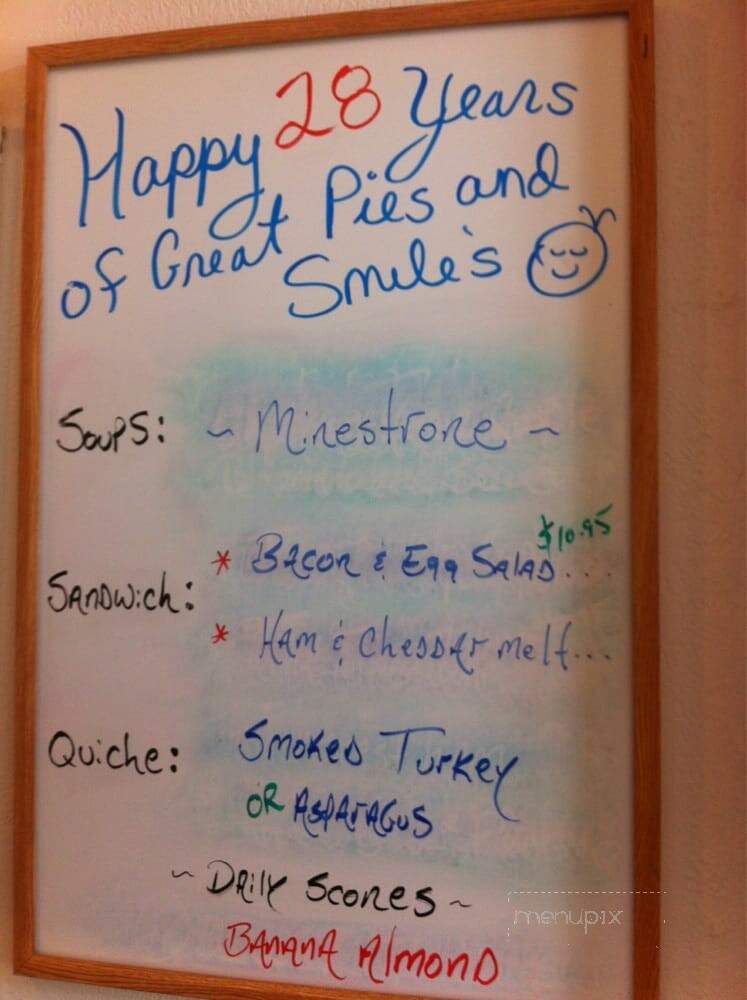 Happy 28 Years
of Great Pies and
Smile's
Soups: ~ Minestrone ~
$10.95
Sandwich: * Bacon & Egg Salad....
* Ham & Cheddar melt...
Quiche: Smoked Turkey
OR Asparagus
~ Daily Scones ~
Banana Almond
menupix